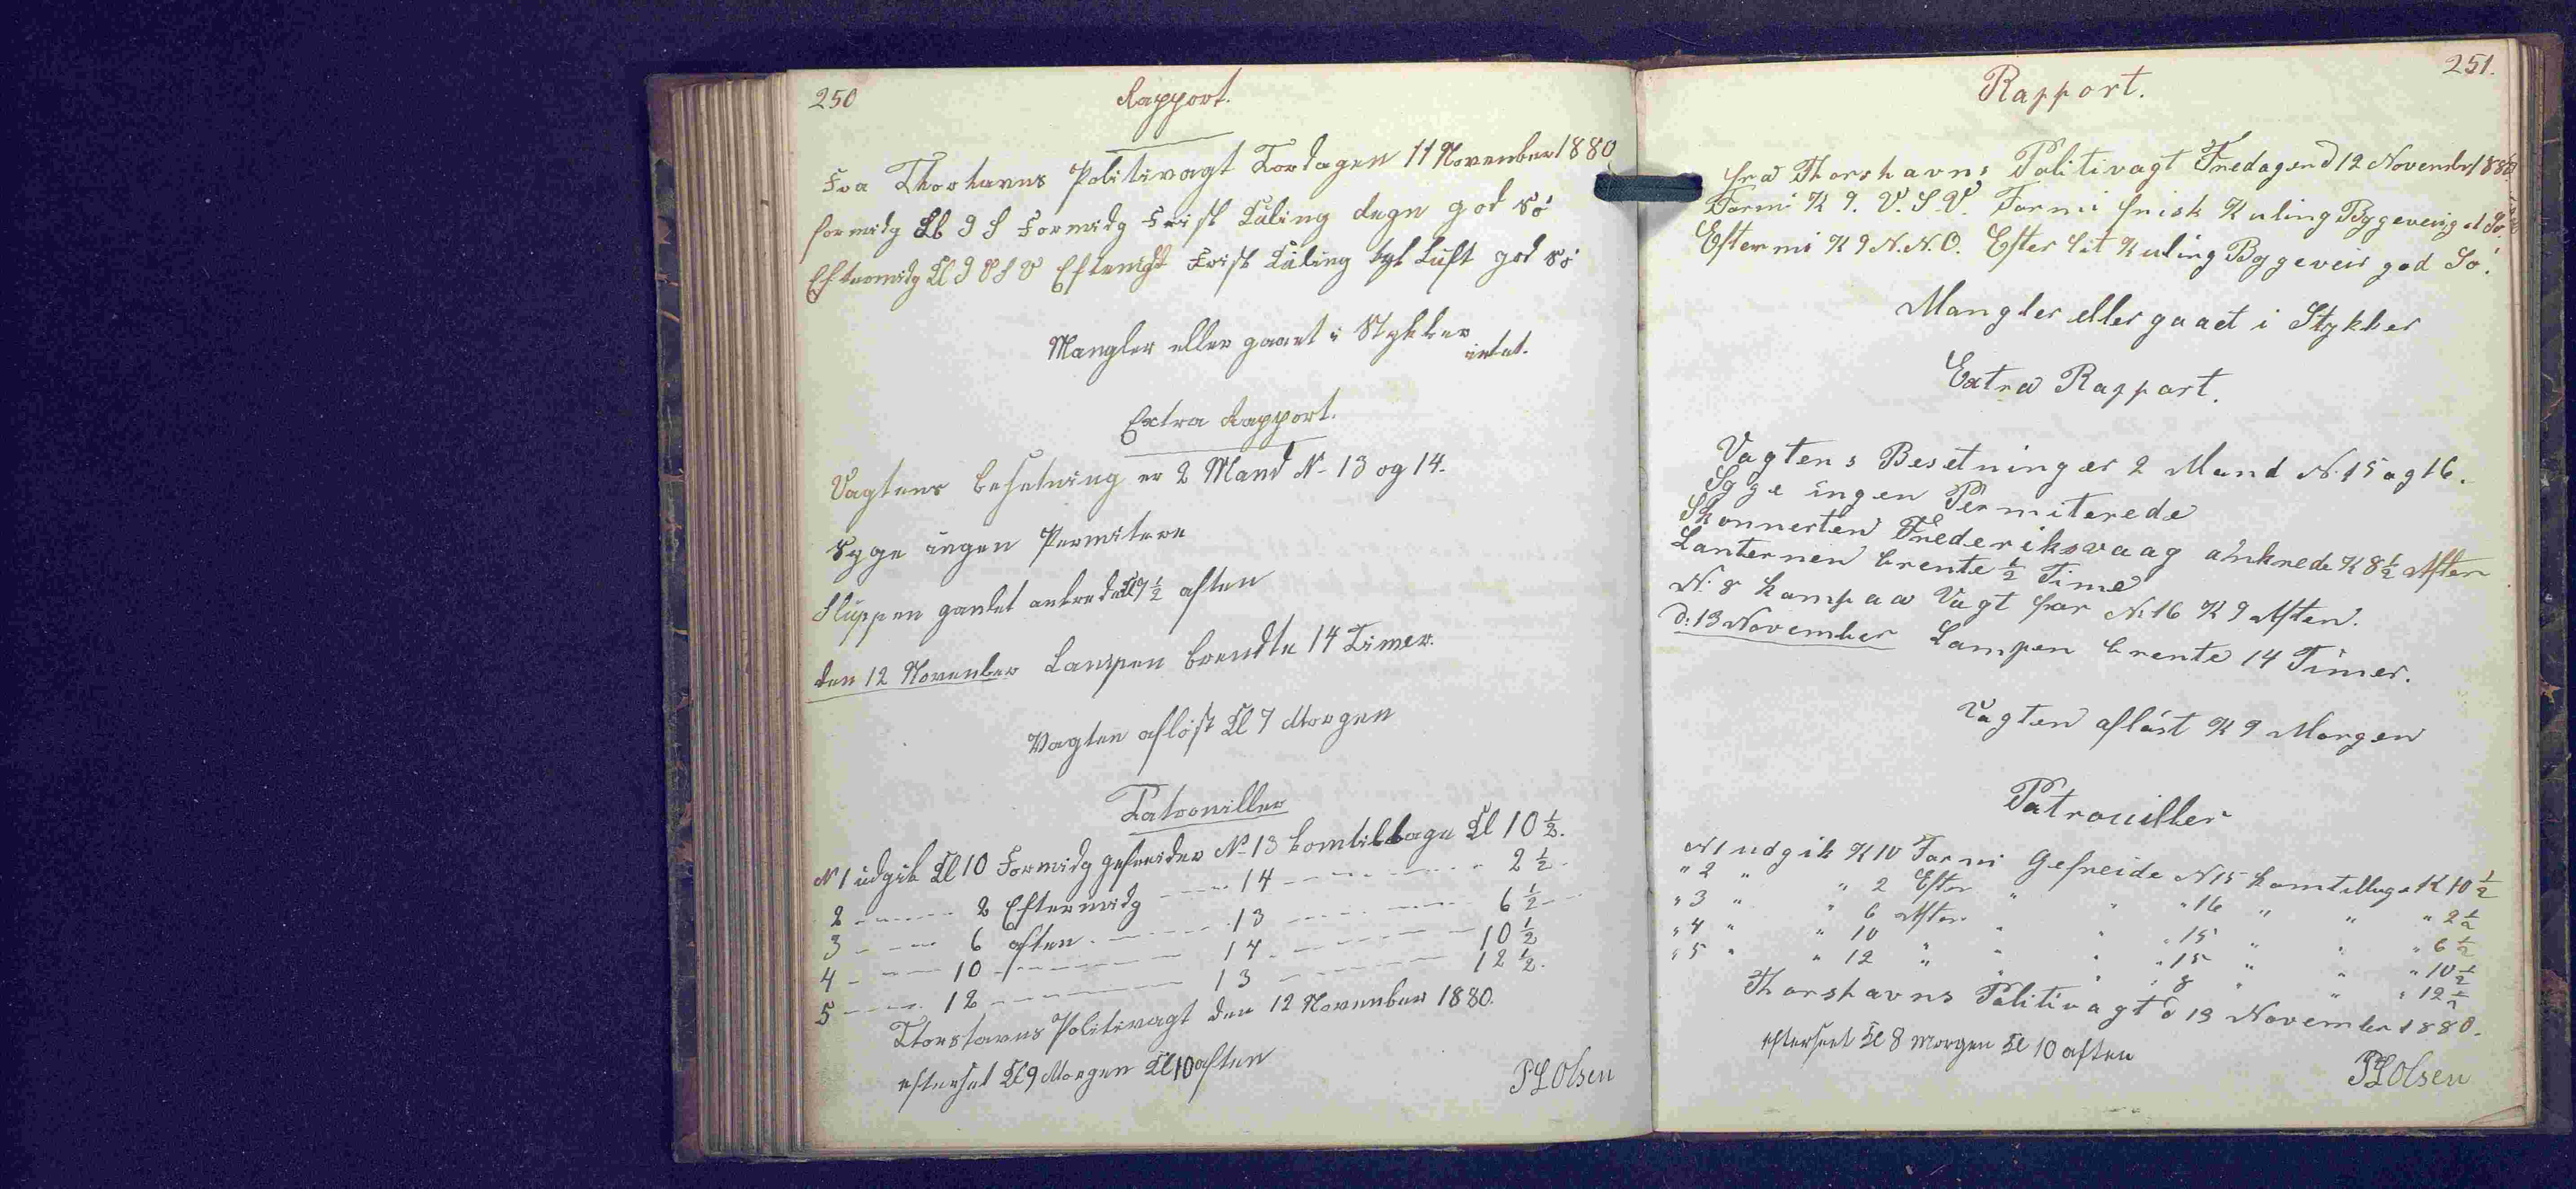 250
Rapport.
Fra Thorhavns Politivagt Tordagen 11 November 1880
formidg Kl 9 S Formidg Frisk Kuling degn god Sö
Eftermidg Kl 9 V S V Eftermidg Frisk Kuling tyk Luft god Sö
Mangler eller gaaet i Stykker
intet.
Extra Rapport.
Vagtens Besetning er 2 Mand No 13 og 14.
Syge ingen Permitere
Sluppen gantet ankrede Kl 7 1/2 aften
den 12 November Lampen brendte 14 Timer.
Vagten aflöst Kl 7 Morgen
Patrouiller
No 1 udgik Kl 10 Formidg gefreider No 13 kom tilbage Kl 10 1/2.
2 - - - 2 Eftermidg - - - 14 - - - 2 1/2
3 - - - 6 aften - - - 13 - - - 6 1/2
4 - - - 10 - - - 14 - - - 10 1/2
5 - - - 12 - - - 13 - - - 12 1/2.
Thorshavns Politivagt den 12 November 1880.
efterset Kl 9 Morgen Kl 10 aften
P L Olsen
251.
Rapport.
fra Thorshavns Politivagt Fredagen d 12 November 1880
Formi Kl 9. V. S. V. Formi frisk Kuling Bygeveir god Sö.
Eftermi Kl 9 N. N. O. Efter lit Kuling Byggeveir god Sö.
Mangler eller gaaet i Stykker
Extra Rapport.
Vagtens Besetning er 2 Mand No 15 og 16.
Syge ingen Permiterede
Skonnerten Frederiksvaag ankrede Kl 8 1/2 Aften
Lanternen brente 1/2 Time
No 8 kom paa Vagt for No 16 Kl 9 Aften.
d: 13 November Lampen brente 14 Timer.
Vagten aflöst Kl 9 Morgen
Patrouiller
No 1 udgik Kl 10 Formi Gefreide No 15 kom tilbage Kl 10 1/2
" 2 " " 2 Efter " " " 16 " " " 2 1/2
" 3 " " 6 Aften " " " 15 " " " 6 1/2
" 4 " " 10 " " " " 15 " " " 10 1/2
" 5 " " 12 " " " " 8 " " " 12 1/2
Thorshavns Politivagt d 13 November 1880.
efterseet Kl 8 Morgen Kl 10 aften
P L Olsen